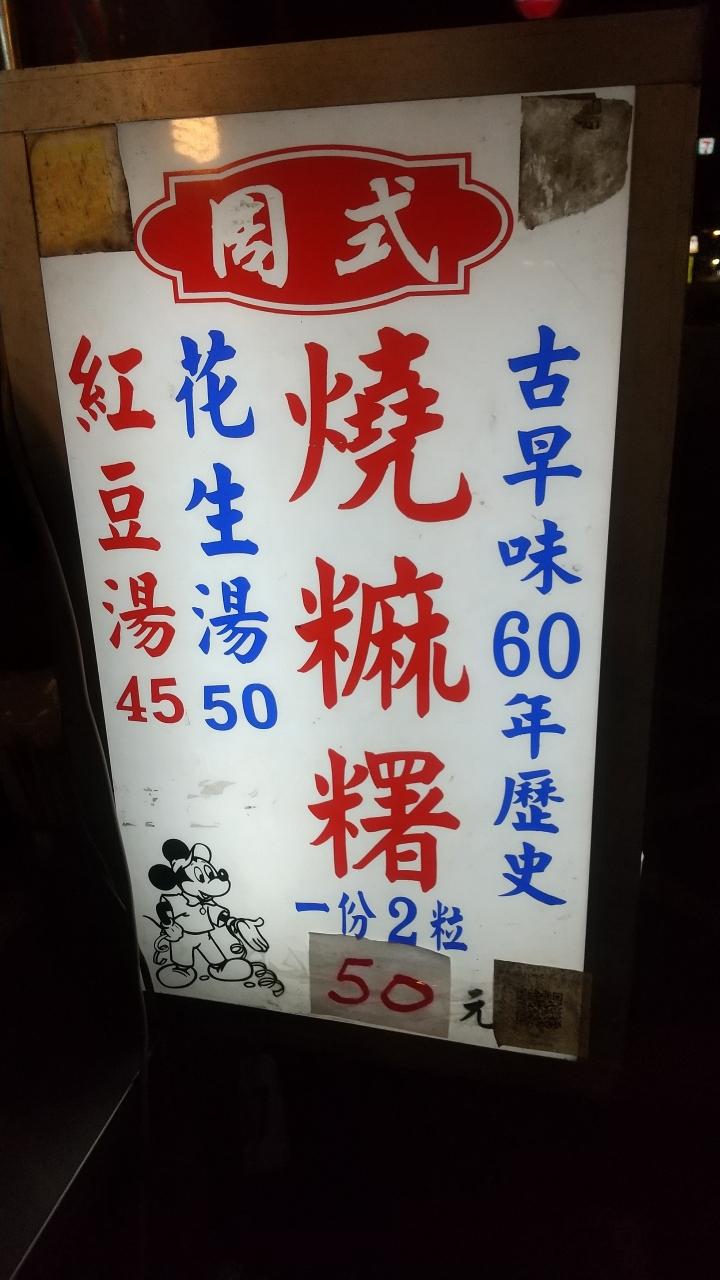 周式
古早味60年歷史
燒糜糬
一份2粒
50元
花生湯50
紅豆湯45